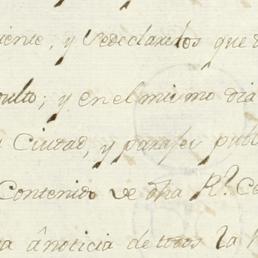 iente, y Sedeclarelos que d
sulto; y en el mismo dia
Ciudad, y paraser publ
Contenido de dha Rl. Ce
a ânoticia de todos la